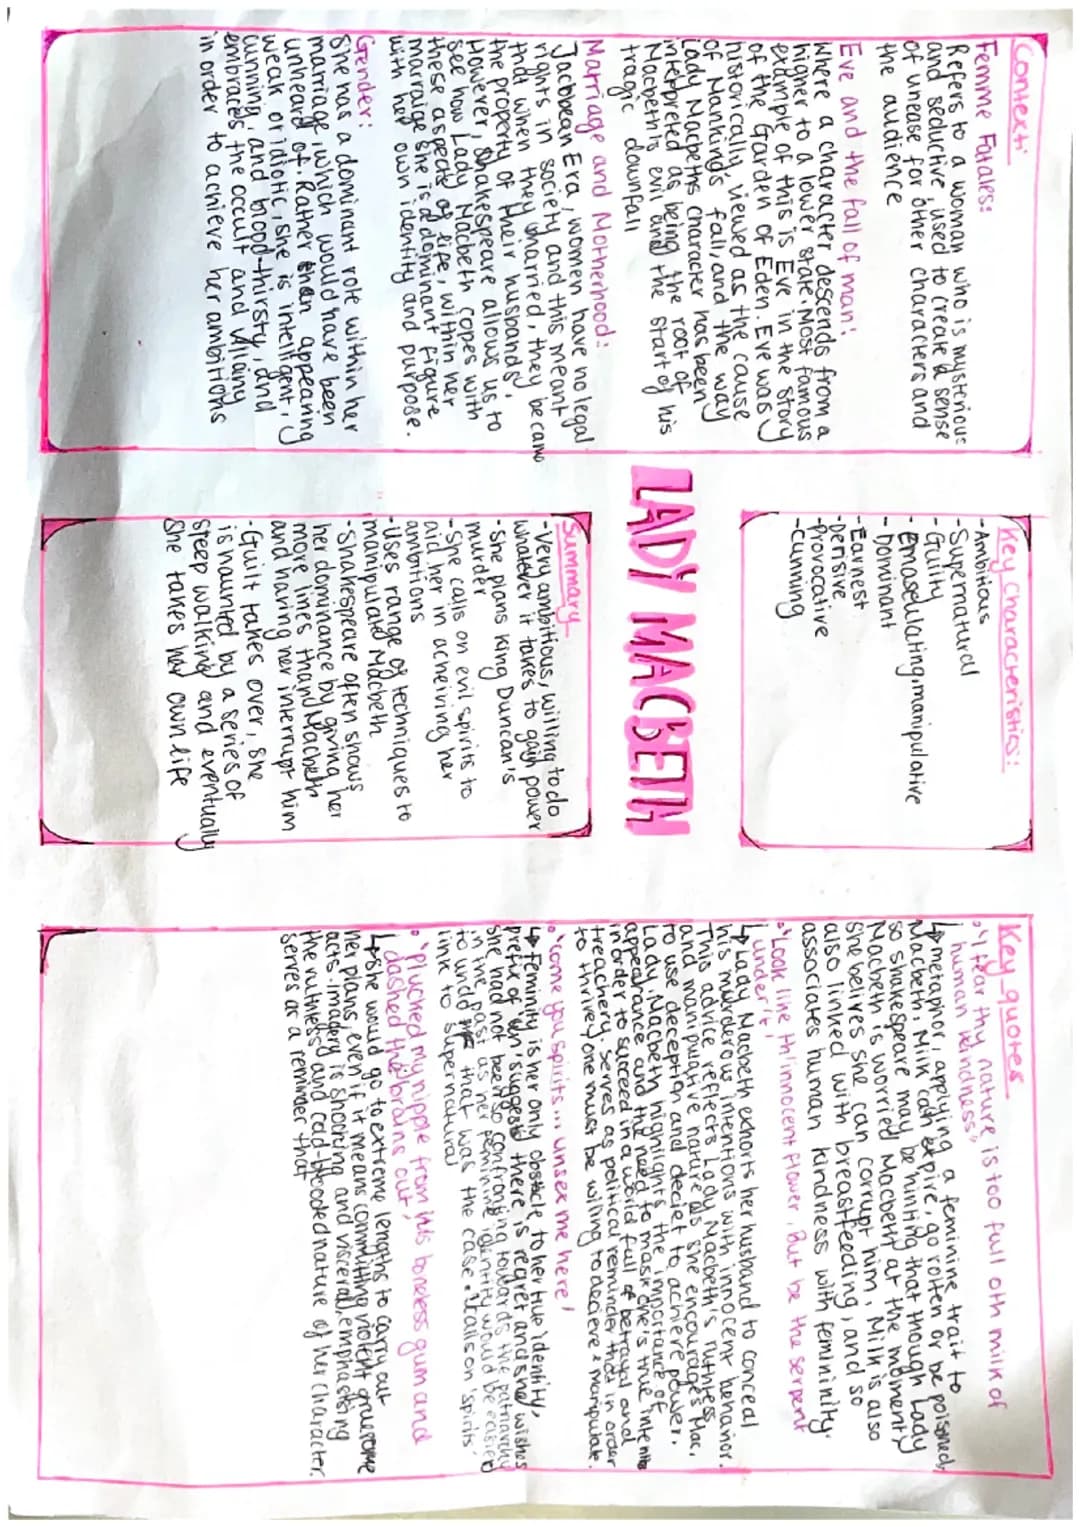 Context:
Femme Fatales:
Refers to a woman who is mysterious
and seductive, used to create a sense
of unease for other characters and
the audience
Eve and the fall of man:
where a character descends from a
higher to a lower state. Most famous
example of this is Eve in the story
of the Garden of Eden. Eve was
historically viewed as the cause
of Mankind's fall, and the way
Lady Macbeths character has been
intepreted as being the root of
Macbeth's evil and the start of his
tragic downfall
Marriage and Motherhood:
Jacobean Era, women have no legal
rights in society and this meant
that when they married, they became
the property of their husbands.
However, Shakespeare allows us to
see how Lady Macbeth copes with
these aspects of life, within her
marraige she is a dominant figure
with her own identity and purpose.
Gender:
She has a dominant role within her
marriage, which would have been
unheard of. Rather than appearing
weak or idiotic, she is intelligent,
cunning, and blood-thirsty, and
embraces the occult and villainy
in order to achieve her ambitions
Key characteristics:
-Ambitious
-Supernatural
-Guilty
-Emasculating, manipulative
-Dominant
-Earnest
-Derisive
-Provocative
-Cunning
LADY MACBETH
Summary
-Very ambitious, willing to do
whatever it takes to gain power
-She plans King Duncan's
murder
-She calls on evil spirits to
aid her in acheiving her
ambitions
-Uses range of techniques to
manipulate Macbeth
-Shakespeare often shows
her dominance by giving her
more lines than Macbeth
and having her interrupt him
-Guilt takes over, she
is haunted by a series of
sleep walking and eventually
she takes her own life
Key quotes
'I fear thy nature is too full oth milk of
human kindness'
↳ metaphor, applying a feminine trait to
Macbeth. Milk can expire, go rotten or be poisoned,
so shakespeare may be hinting that though Lady
Macbeth is worried Macbeth at the moment,
she belives she can corrupt him. Milk is also
also linked with breastfeeding, and so
associates human kindness with femininity.
'Look like th'innocent flower, But be the serpent
under it'
↳ Lady Macbeth exhorts her husband to conceal
his murderous intentions with innocent behavior.
This advice reflects Lady Macbeth's ruthless
and manipulative nature as she encourages Mac,
to use deception and deciet to achieve power.
Lady Macbeth highlights the importance of
appearance and the need to mask one's true intents
in order to succeed in a world full of betrayal and
treachery. Serves as political reminder that in order
to thrive, one must be willing to decieve & manipulate.
'Come you spirits... unsex me here'
↳ Feminity is her only obstacle to her true identity,
prefix of 'un' suggests there is regret and she wishes
she had not been so confronting towards the patriarchy
in the past as her feminine identity would be easier
to undo if that was the case. calls on 'spirits'
link to supernatural
'plucked my nipple from his boneless gum and
dashed the brains out'
↳ She would go to extreme lengths to carry out
her plans, even if it means committing violent gruesome
acts. Imagery is shocking and visceral, emphasising
the ruthless and cold-blooded nature of her character.
serves as a reminder that